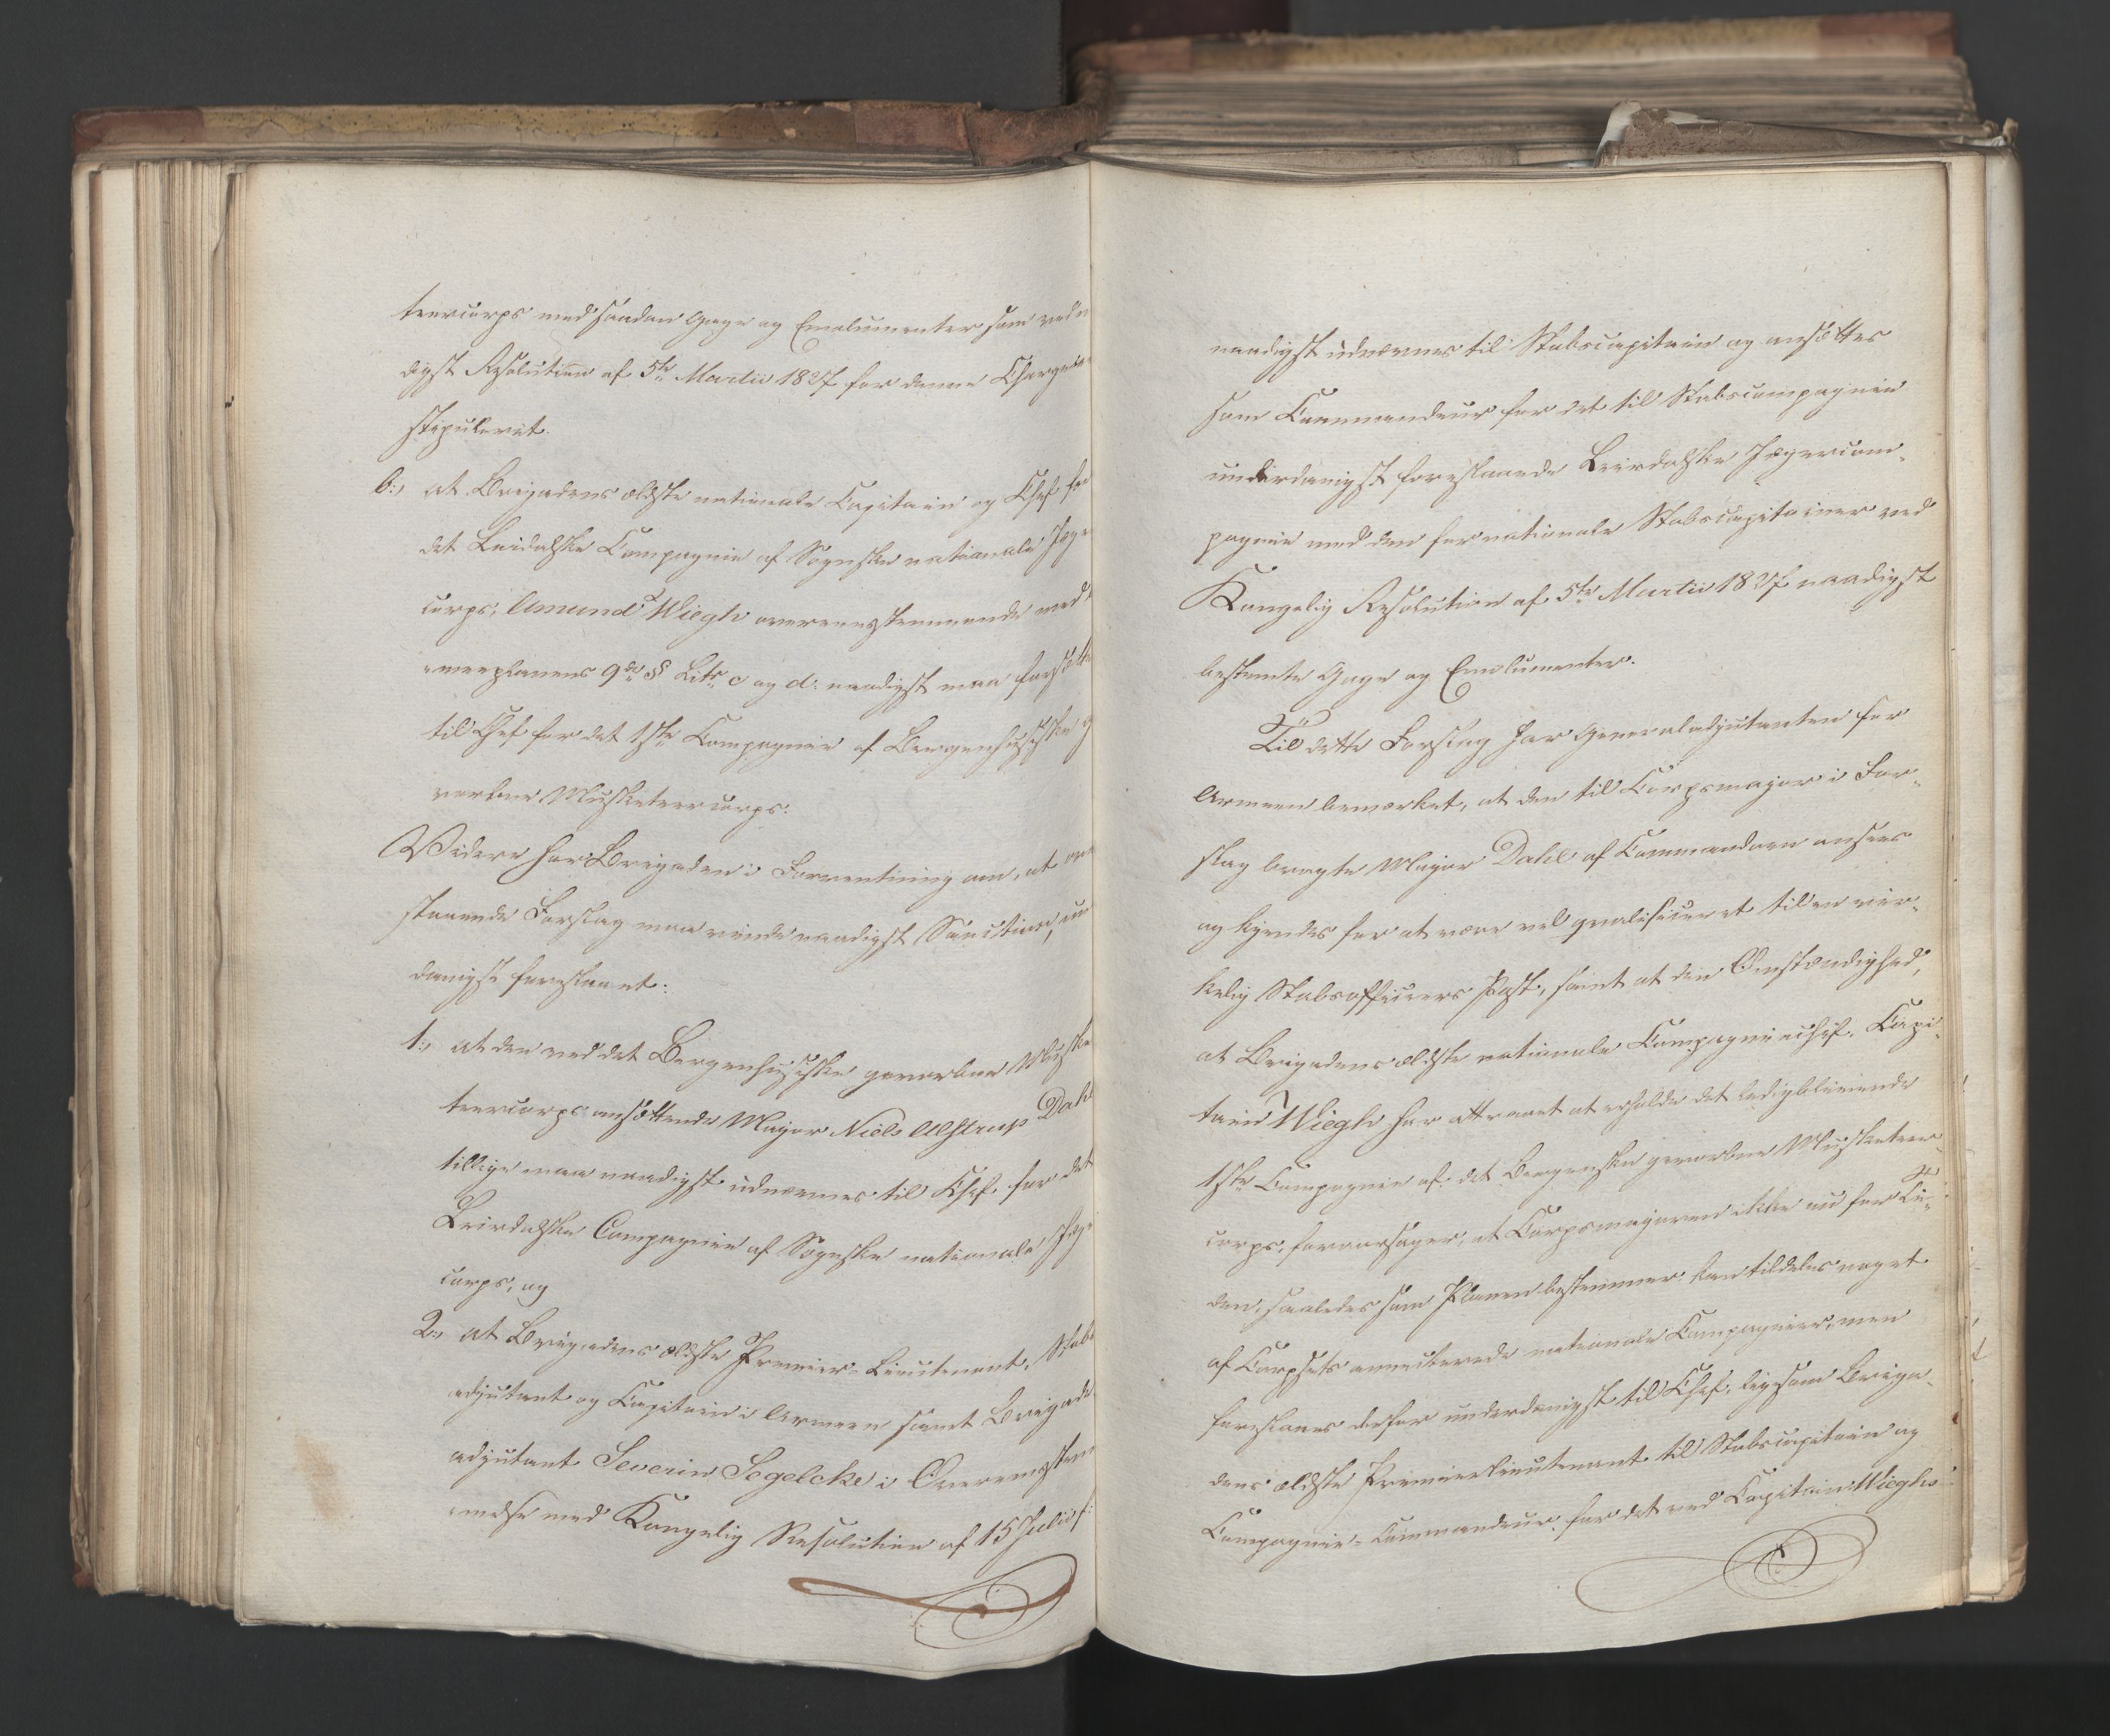 teercorps med saadan Gage og Emolumenter som
digst Resolution af 5te Martii 1827 for denne Charge
stipuleret.
b:, at Brigadens ældste nationale Capitain og Chef for
det Leirdalske Compagnie af Sognske nationale Jæger
corps, Amund Wiegh overeensstemmende med
meeplanens 9de § Litr. c og d: naadigst maa forsættes
til Chef for det 1ste Compagnie af Bergenhusiske
vorbne Musketeercorps.
Videre har Brigaden i Forventning om, at
staaende Forslag maa vinde naadigst Sanction,
danigst foreslaaet:
1:, at den ved det Bergenhusiske gevorbne Muske
teercorps ansættende Major Niels Alstrup Dahl
tillige maa naadigst udnævnes til Chef for det
Leirdalske Compagnie af Sognske nationale Jæger
corps, og
2:, at Brigadens ældste Premier-Lieutenant, Stabs
adjutant og Capitain i Armeen samt Brigade
adjutant Severin Segelcke i Overeensstem
melse med Kongelig Resolution af 15 Julii f:
naadigst udnævnes til Stabscapitain og ansættes
som Commandeur for det til Stabscompagnie
underdanigst foreslaaede Leirdalske Jægercom-
pagnie med den for nationale Stabscapitainer ved
Kongelig Resolution af 5te Martii 1827 naadigst
bestemte Gage og Emolumenter.
Til dette Forslag har Generaladjutanten for
Armeen bemærket, at den til Corpsmajor i For-
slag bragte Major Dahl af Commandoen ansees
og kjendes for at være vel qvalificeret til en vir-
kelig Stabsofficeers Post, samt at den Omstændighed,
at Brigadens ældste nationale Compagniechef, Capi-
tain Wiegh har attraaet at erholde det ledigblivende
1ste Compagnie af det Bergenske gevorbne Musketeer-
corps, foraarsager, at Corpsmajoren ikke nu for Ti-
den, saaledes som Planen bestemmer kan tildeles noget
af Corpsets annecterede nationale Compagnier, men
foreslaaes derfor underdanigst til Chef, ligesom Briga-
dens ældste Premierlieutenant til Stabscapitain og
Compagnie-Commandeur, for det ved Capitain Wieghs